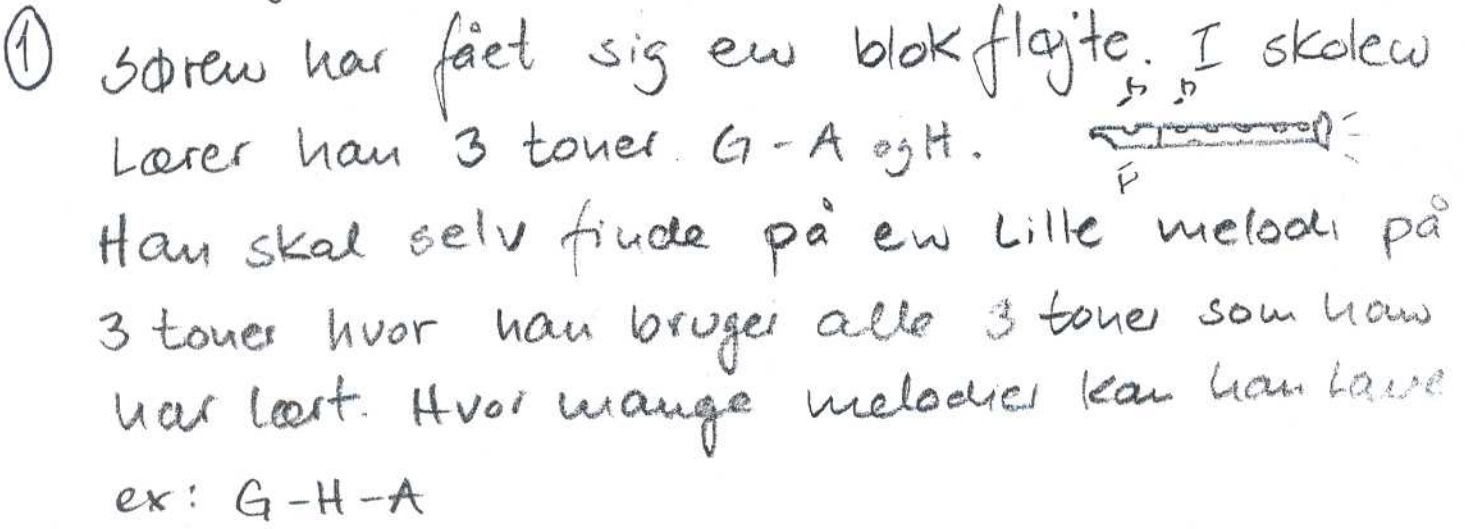 ① Søren har fået sig en blokfløjte. I skolen
Lærer han 3 toner. G - A og H.
Han skal selv finde på en Lille melodi på
3 toner hvor han bruger alle 3 toner som han
har lært. Hvor mange melodier kan han Lave
ex: G - H - A